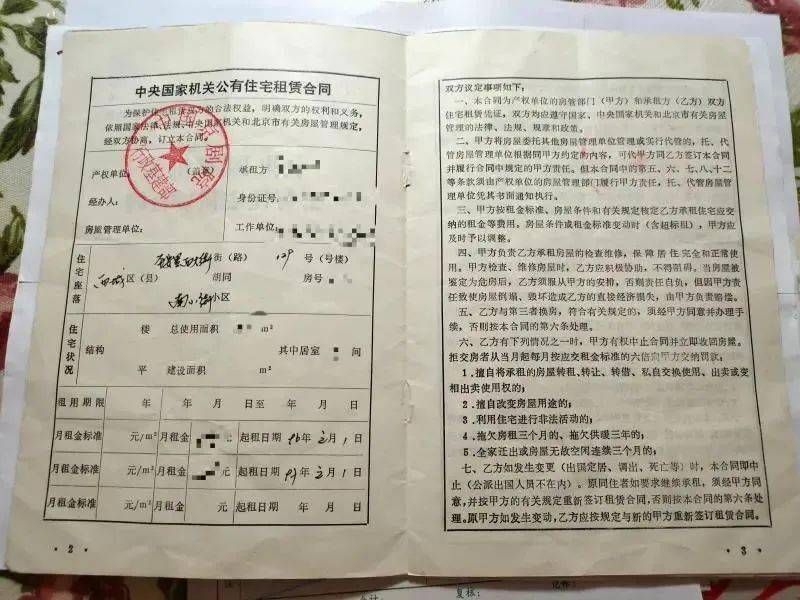 中央国家机关公有住宅租赁合同
为保护住宅租赁双方的合法权益，明确双方的权利和义务，
依照国家法律、法规、中央国家机关和北京市有关房屋管理规定，
经双方协商，订立本合同。
产权单位： (盖章)
承租方
经办人：
身份证号：
房屋管理单位：
工作单位：
住宅座落
西城区(县) 大街(路) 129号(号楼)
胡同 房号
南小街小区
住宅状况
楼 总使用面积 m²
结构 其中居室 间
平 建设面积 m²
租用期限 年 年 月 日至 年 月 日
月租金标准 元/m² 月租金 元 起租日期 年 月 1 日
月租金标准 元/m² 月租金 元 起租日期 年 月 1 日
月租金标准 元/m² 月租金 元 起租日期 年 月 日
· 2 ·
双方议定事项如下：
一、本合同为产权单位的房管部门(甲方)和承租方(乙方)双方
住宅租赁凭证。双方均应遵守国家、中央国家机关和北京市有关房屋
管理的法律、法规、规章和政策。
二、甲方将房屋委托其他房屋管理单位管理或实行代管的，托、代
管房屋管理单位根据同甲方约定的内容，可代甲方同乙方签订本合同
并履行合同中规定的甲方责任。但本合同中的第五、六、七、八、十二
等条款须由产权单位的房屋管理部门履行甲方责任，托、代管房屋管
理单位凭其书面通知执行。
三、甲方按租金标准、房屋条件和有关规定核定乙方承租住宅应交
纳的租金等费用。房屋条件或租金标准变动时(含超标租)，甲方应
及时予以调整。
四、甲方负责乙方承租房屋的检查维修，保障居住完全和正常使
用。甲方检查、维修房屋时，乙方应积极协助，不得阻碍。当房屋被
鉴定为危房后，乙方须服从甲方的安排，否则责任自负，但因甲方责
任致使房屋倒塌、毁坏造成乙方的直接经济损失，由甲方负责赔偿。
五、乙方与第三者换房，符合有关规定的，须经甲方同意并办理手
续，否则按本合同的第六条处理。
六、乙方有下列情况之一时，甲方有权中止合同并立即收回房屋。
拒交房者从当月起每月按应交租金标准的六倍向甲方交纳罚款：
1.擅自将承租的房屋转租、转让、转借、私自交换使用、出卖或变
相出卖使用权的；
2.擅自改变房屋用途的；
3.利用住宅进行非法活动的；
4.拖欠房租三个月的、拖欠供暖三年的；
5.全家迁出或房屋无故空闲连续三个月的；
七、乙方如发生变更(出国定居、调出、死亡等)时，本合同即中
止(公派出国人员不在内)。原同住者如要求继续承租，须经甲方同
意，并按甲方的有关规定重新签订租赁合同，否则按本合同的第六条处
理。原甲方如发生变动，乙方应按规定与新的甲方重新签订租赁合同。
· 3 ·
复核：